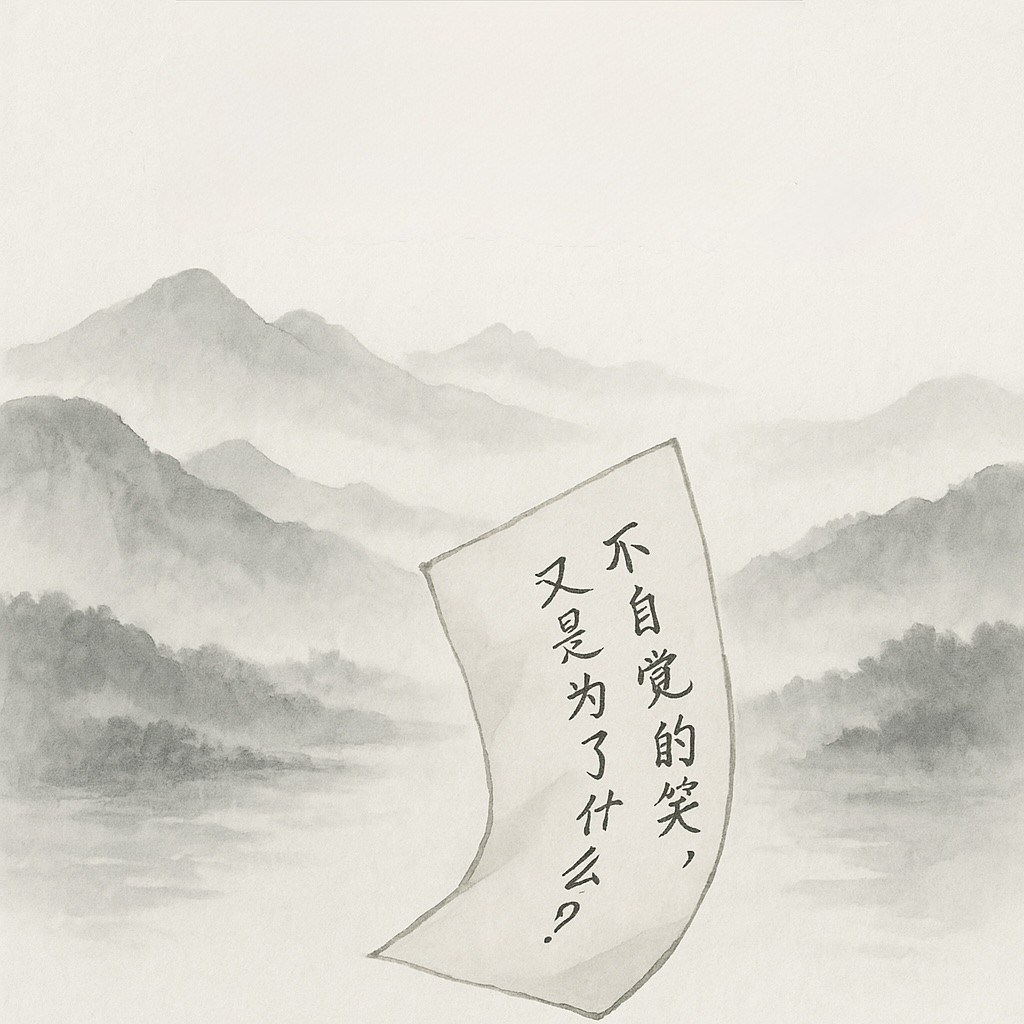 不自觉的笑，
又是为了什么？